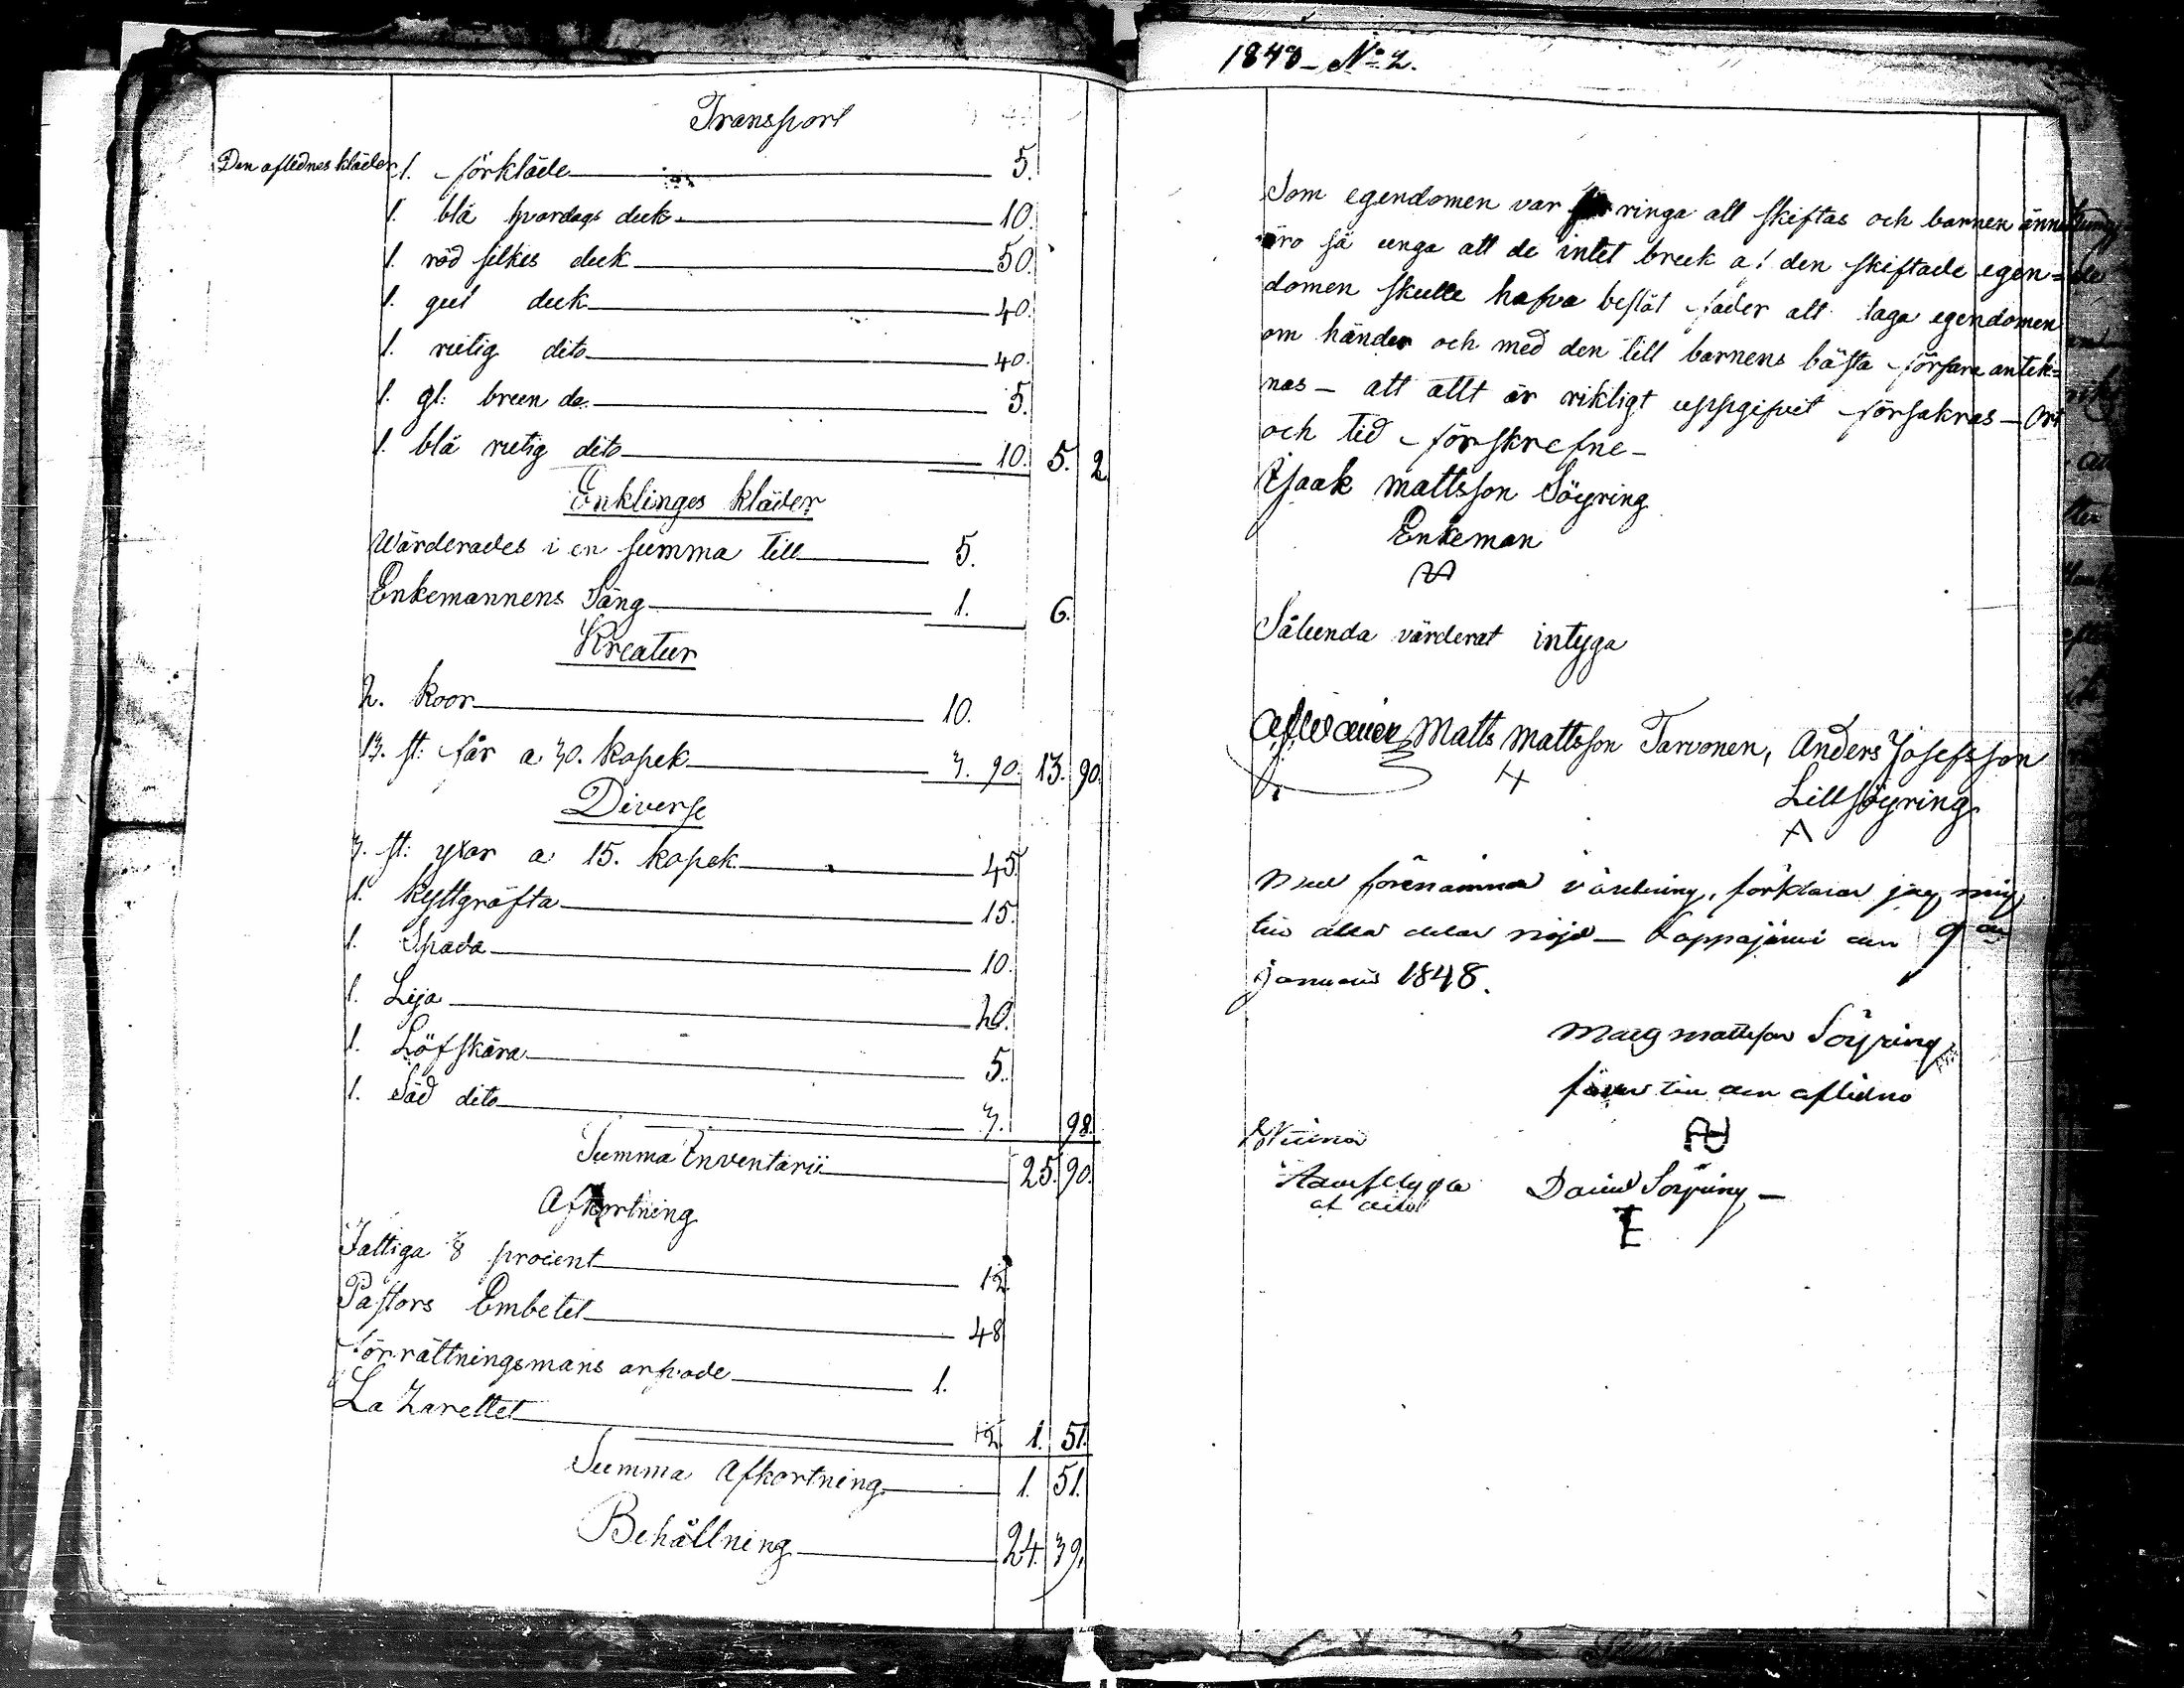 Transport
Den aflednes kläder 1. förkläde 5.
1. blå hvardags duk 10.
1. röd silkes duk 50.
1. gul duk 40.
1. rutig dito 40.
1. gl: brun do 5.
1. blå rutig dito 10. 5. 2
Enklinges kläder
Wärderades i en summa till 5.
Enkemannens Säng 1. 6.
Kreatur
2. koor 10.
13. st: får a 30. kopek 3. 90. 13. 90.
Diverse
3. st: yxor a 15. kopek 45
1. kyttgräfta 15.
1. Spada 10.
1. Lija 20.
1. Löfskära 5.
1. Säd dito 3. 98.
Summa Inventarii 25. 90.
Afkortning
Fattiga 1/8 procent
Pastors Embetet 48
förrättningsmans arfvode 1.
La Zarettet 1. 51.
Summa Afkortning 1. 51.
Behållning 24. 39.
1848 - No 2.
Som egendomen var ringa att skiftas och barnen ännu
äro så unga att de intet bruk af den skiftade egen=
domen skulle hafva beslöt fader att taga egendomen
om händer och med den till barnens bästa förfara antek=
nas - att allt är riktigt uppgifvit försäkras - Ort
och tid förskrefne -
Isaak Mattsson Söyring
Enkeman
Sålunda värderat intyga
Matts Mattsson Tarvonen, Anders Josefsson
Lillsöyring
Med förenämnda värdering, förklarar jag mig
till alla delar nöjd - Lappajärvi den 9 de
Januari 1848.
Mattsson Söyring
fader till den aflidna
David Söyring -